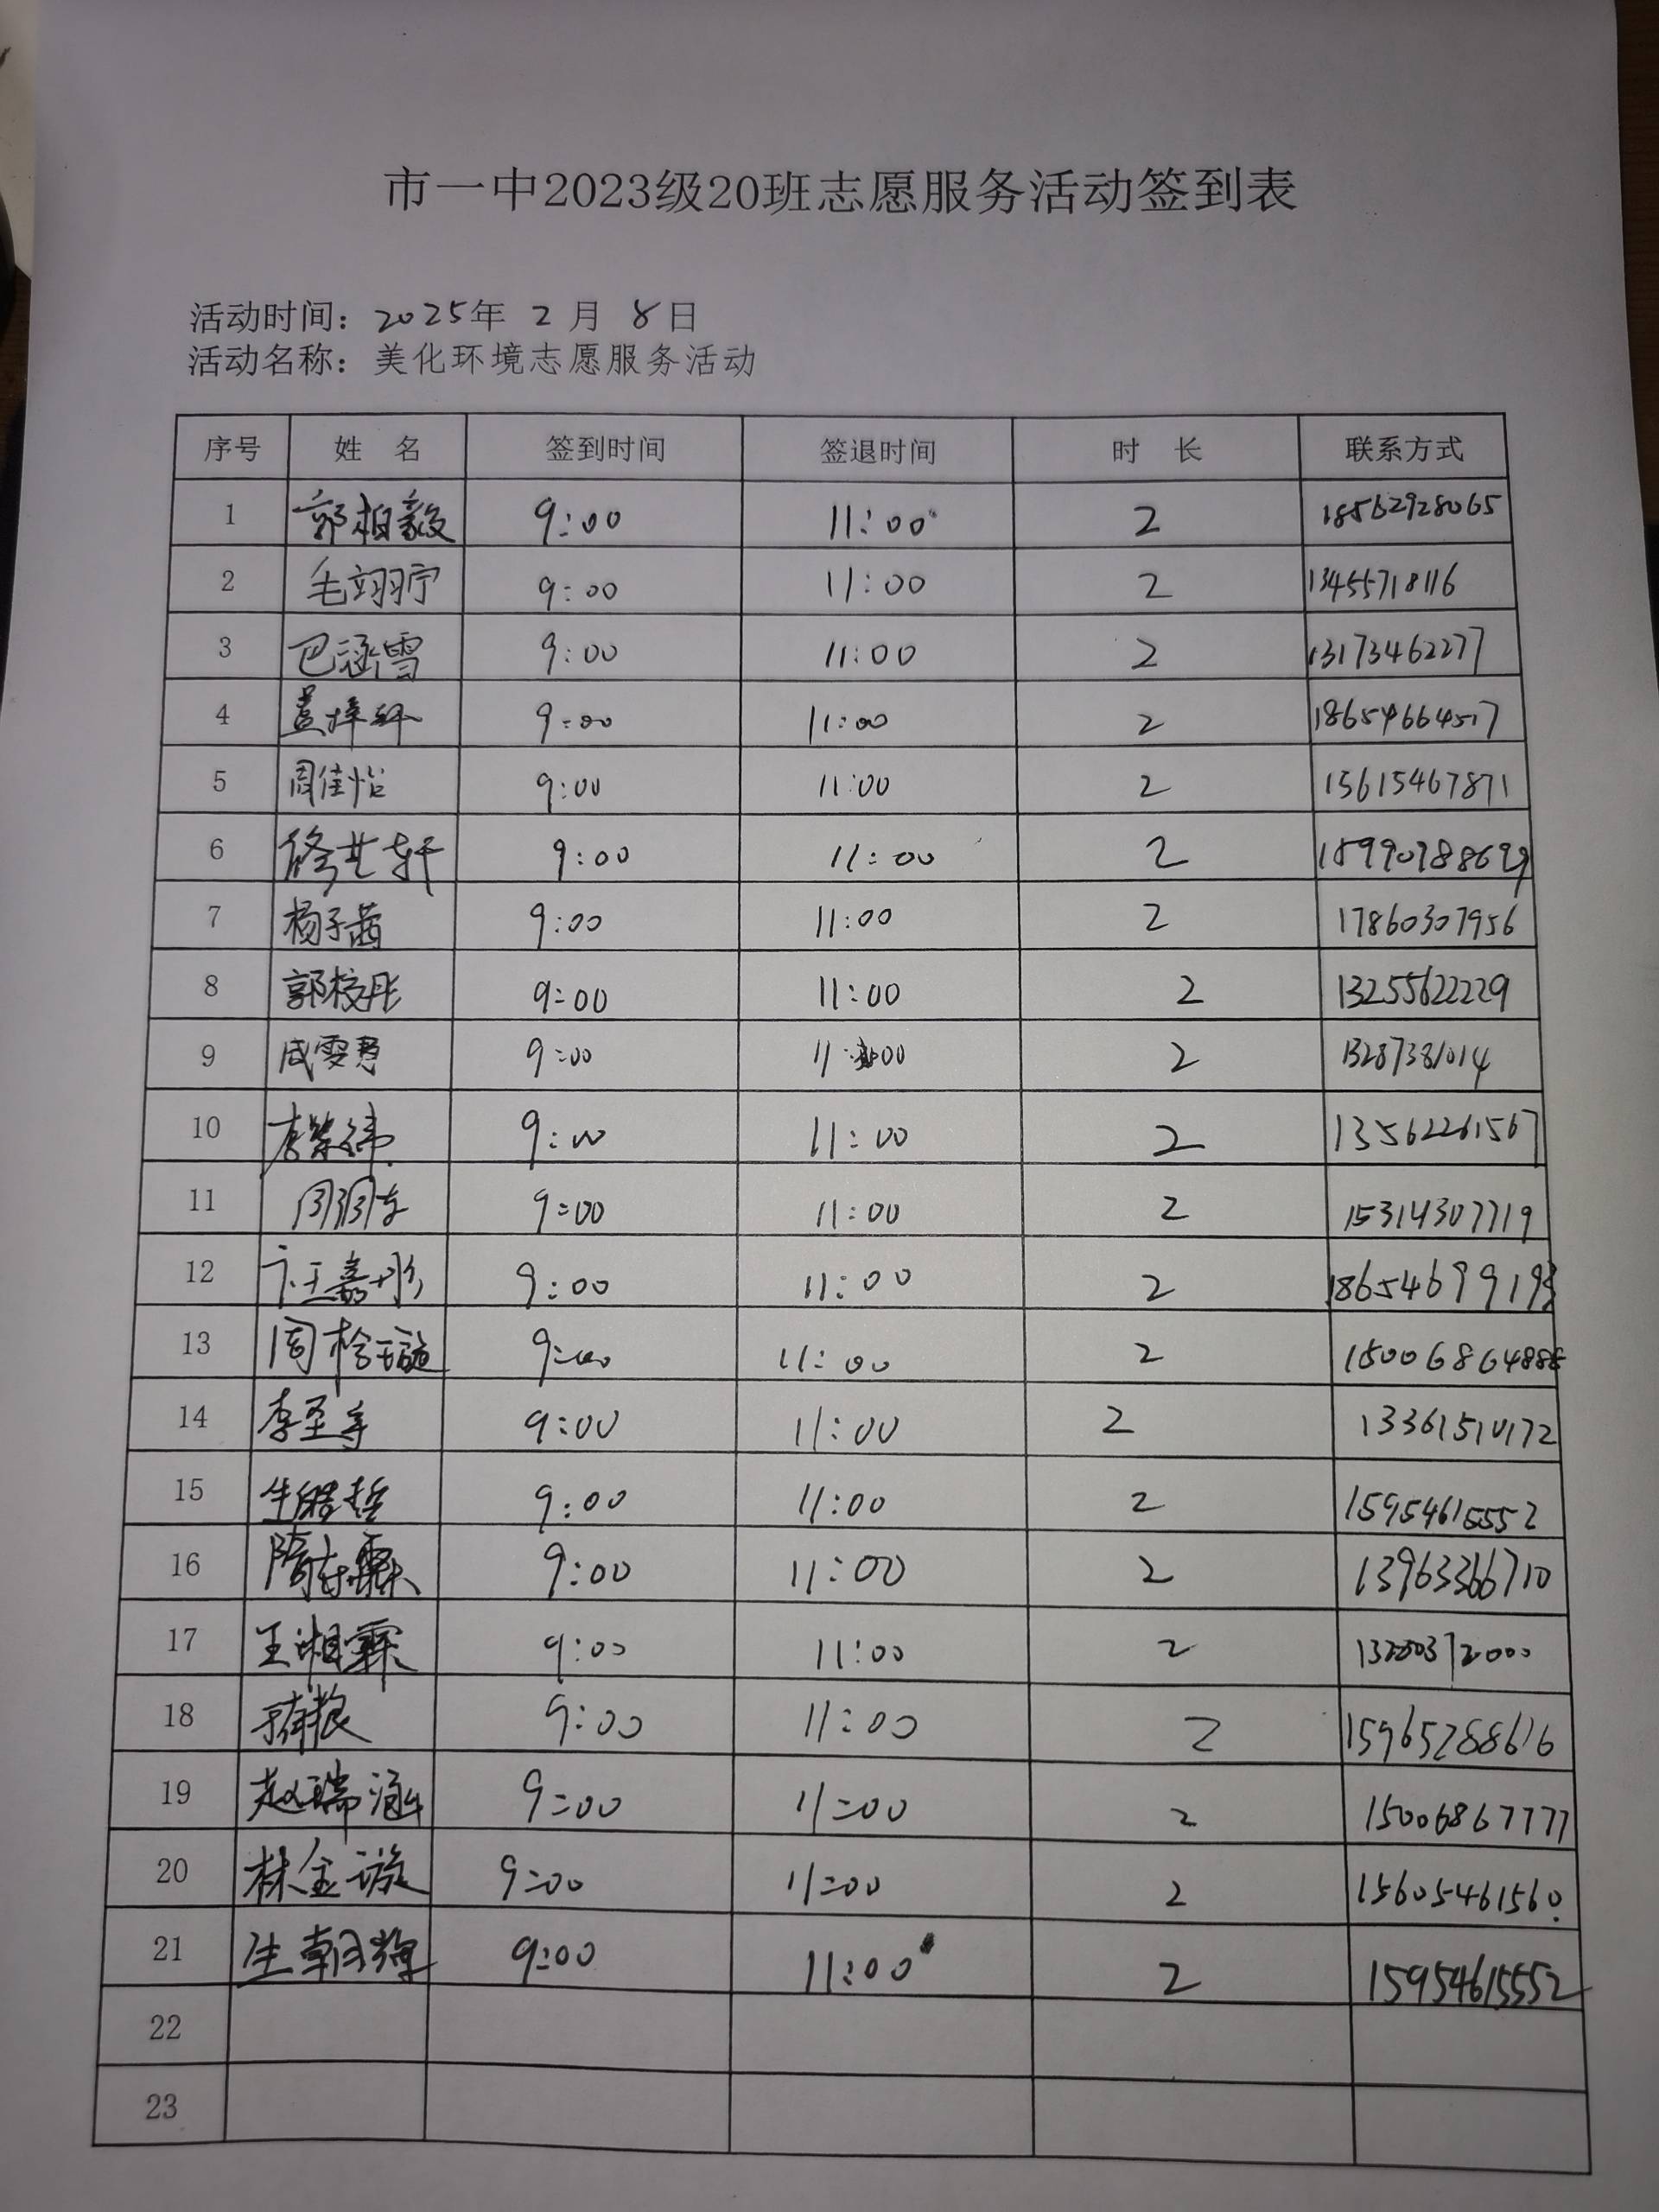 市一中2023级20班志愿服务活动签到表
活动时间：2025年 2 月 8日
活动名称：美化环境志愿服务活动
序号 姓 名 签到时间 签退时间 时 长 联系方式
1 郭柏毅 9:00 11:00 2 18562928065
2 毛翊宁 9:00 11:00 2 13455718116
3 巴涵雪 9:00 11:00 2 13173462277
4 9:00 11:00 2 18654664517
5 周佳怡 9:00 11:00 2 15615467871
6 修艺轩 9:00 11:00 2
7 杨子茜 9:00 11:00 2 17860307956
8 郭桉彤 9:00 11:00 2 13255622229
9 9:00 11:00 2 13287381014
10 9:00 11:00 2 13562261567
11 9:00 11:00 2 15314307719
12 卞王嘉彤 9:00 11:00 2
13 9:00 11:00 2
14 李至 9:00 11:00 2 13361510172
15 9:00 11:00 2 15954615552
16 9:00 11:00 2 13963366710
17 王湘霖 9:00 11:00 2
18 9:00 11:00 2 15965288616
19 赵瑞涵 9:00 11:00 2 15006867777
20 林金璇 9:00 11:00 2 15605461560
21 生朝 9:00 11:00 2 15954615552
22
23